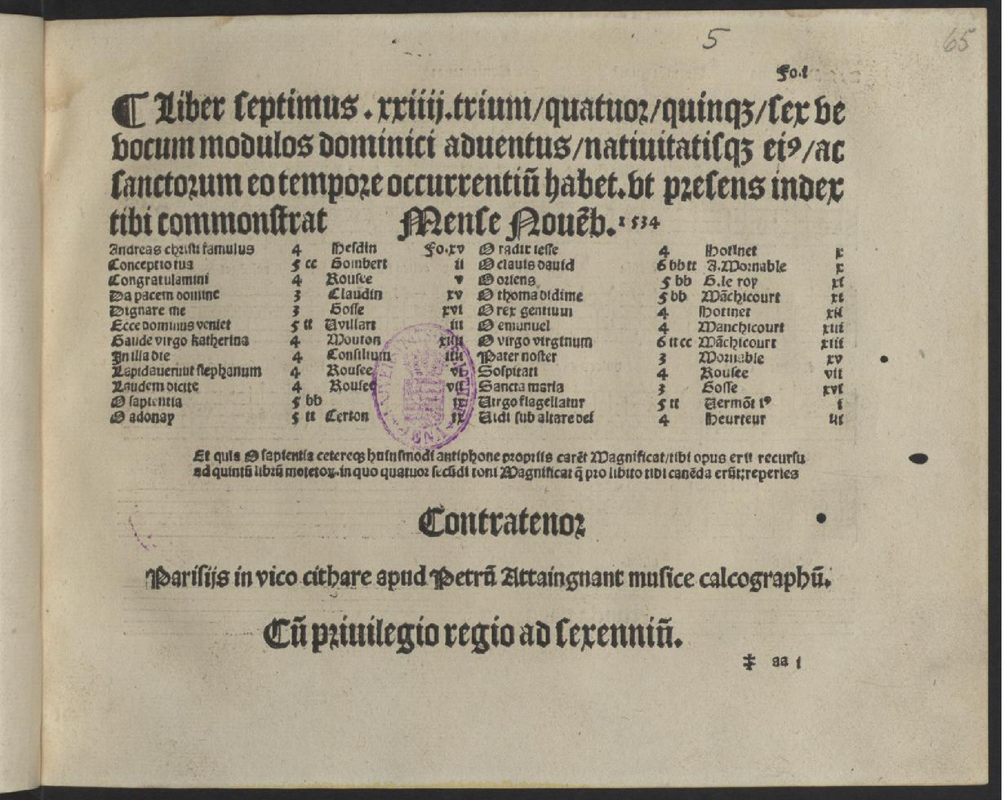 5
65
Fo.i
¶ Liber septimus. xxiiij. trium/quatuor/quinqꝫ/sex ve
vocum modulos dominici aduentus/natiuitatisqꝫ eiꝰ/ac
sanctorum eo tempore occurrentiū habet. vt presens index
tibi commonstrat Mense Nouēb. 1534
Andreas christi famulus 4 Hesdin Fo.xv O radix iesse 4 Hotinet x
Conceptio tua 5 cc Gombert ii O clauis dauid 6 bb tt A.Mornable x
Congratulamini 4 Rousee v O oriens 5 bb G.le roy xi
Da pacem domine 3 Claudin xv O thoma didime 5 bb Māchicourt xi
Dignare me 3 Gosse xvi O rex gentium 4 Hotinet xii
Ecce dominus veniet 5 tt Vvillart iii O emanuel 4 Manchicourt xiii
Gaude virgo katherina 4 Mouton xiiii O virgo virginum 6 tt cc Māchicourt xiii
In illa die 4 Consilium iiii Pater noster 3 Mornable xv
Lapidauerunt stephanum 4 Rousee vi Sospitati 4 Rousee vii
Laudem dicite 4 Rousee vii Sancta maria 3 Gosse xvi
O sapientia 5 bb ix Virgo flagellatur 5 tt Vermōt iꝰ i
O adonay 5 tt Certon ix Vidi sub altare dei 4 Heurteur
Et quia O sapientia cetereqꝫ huiusmodi antiphone propriis carēt Magnificat/tibi opus erit recursu
ad quintū librū motetoꝝ, in quo quatuor secūdi toni Magnificat q̄ pro libito tibi canēda erūt; reperies
Contratenor
Parisijs in vico cithare apud Petrū Attaingnant musice calcographū.
Cū priuilegio regio ad sexenniū.
‡ aa i